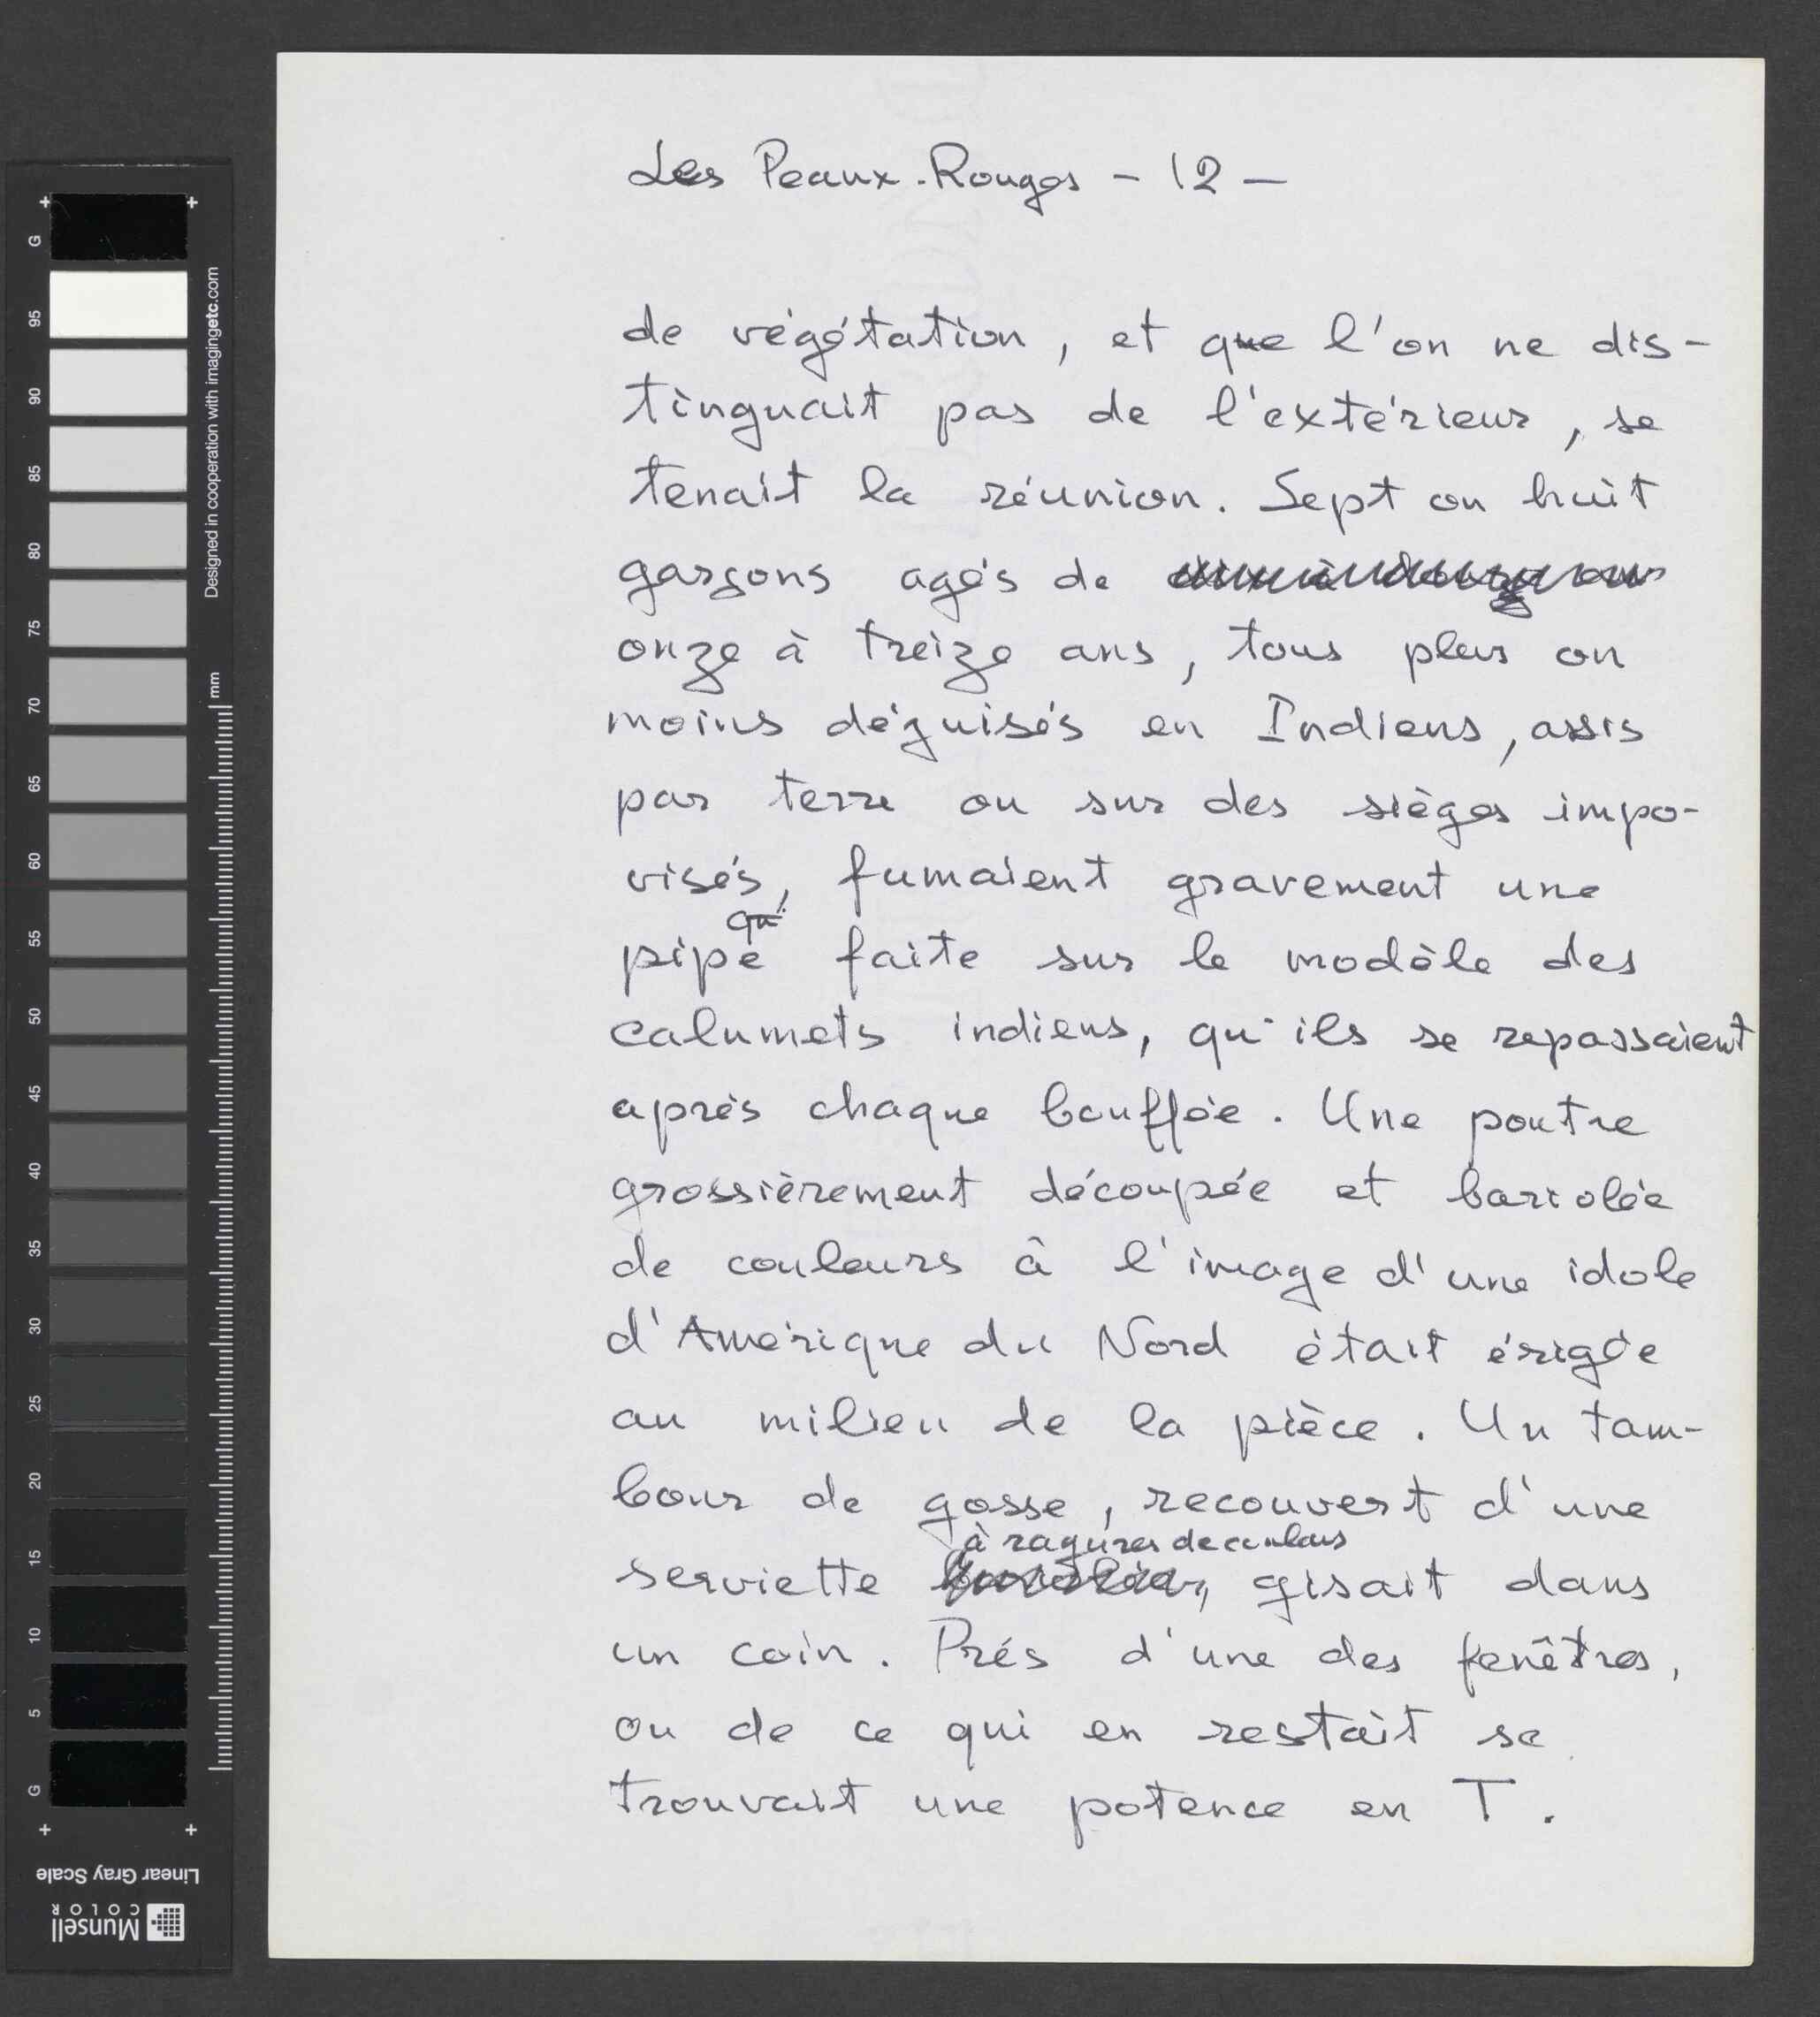 Les Peaux-Rouges - 12 -
de végétation, et que l'on ne dis-
tinguait pas de l'extérieur, se
tenait la réunion. Sept ou huit
garçons agés de
onze à treize ans, tous plus ou
moins déguisés en Indiens, assis
par terre ou sur des sièges impo-
visés, fumaient gravement une
qu'
pipe faite sur le modèle des
calumets indiens, qu'ils se repassaient
après chaque bouffée. Une poutre
grossièrement découpée et bariolée
de couleurs à l'image d'une idole
d'Amérique du Nord était érigée
au milieu de la pièce. Un tam-
bour de gosse, recouvert d'une
à rayures de couleurs
serviette , gisait dans
un coin. Prés d'une des fenêtres,
ou de ce qui en restait se
trouvait une potence en T.
G
95
90
85
80
75
70
65
60
55
50
45
40
35
30
25
20
15
10
5
G
mm
Designed in cooperation with imagingetc.com
Linear Gray Scale
Munsell
COLOR